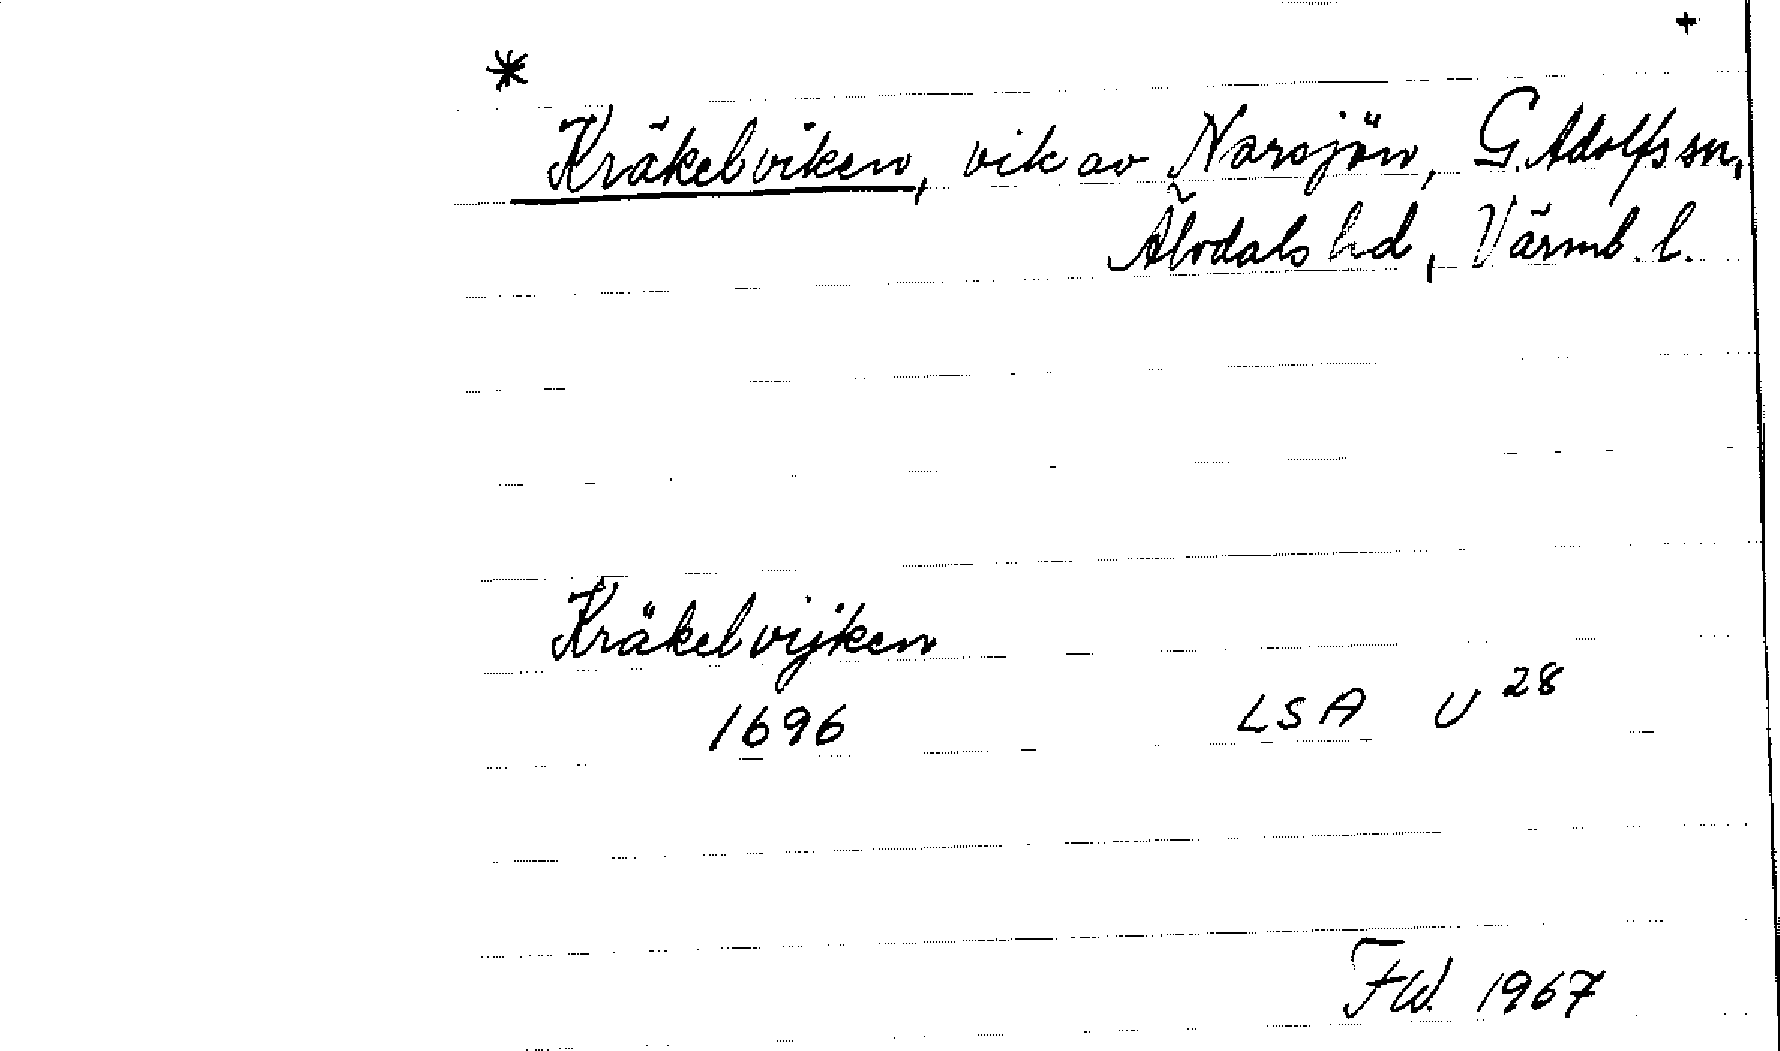 +
*
Kräkelviken, vik av Narsjön, G. Adolfs sn,
Älvdals hd, Värml. l.
Kräkelvijken
1696 LSA U 28
FW. 1967